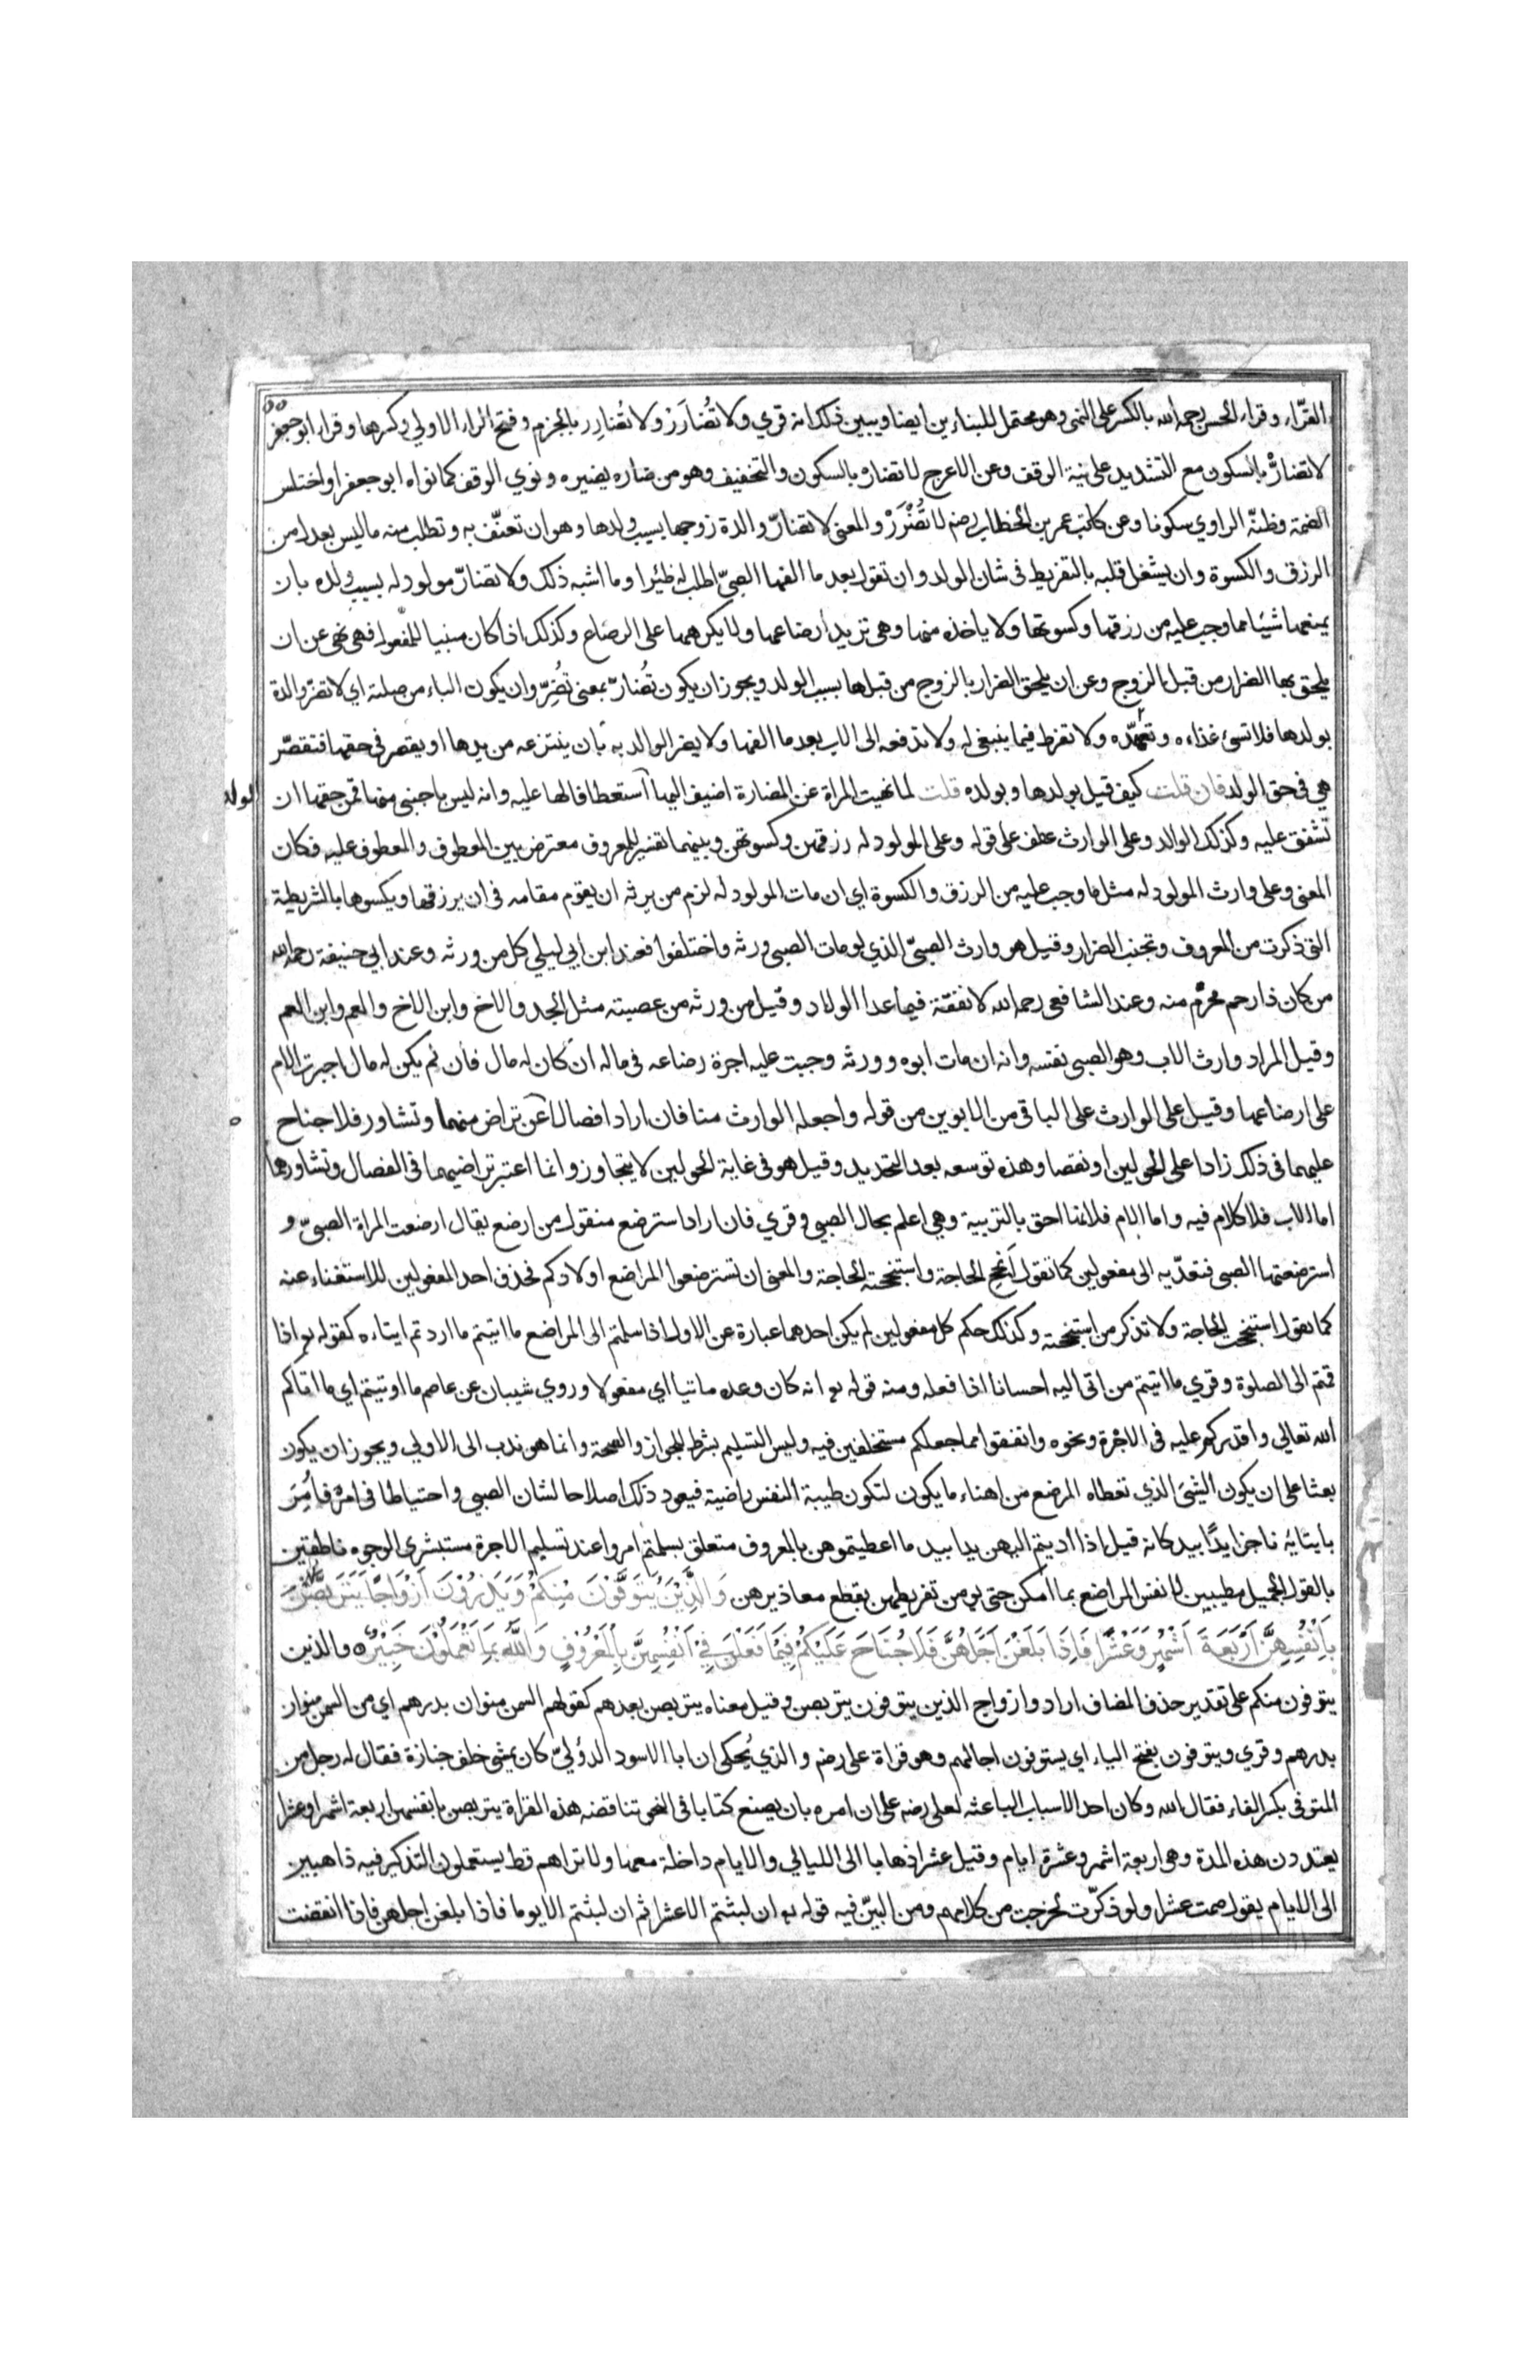 القرّاء وقراء الحسن رحمه الله بالكسر على النهى وهو محتمل للبناءين ايضا ويبين ذلك انه قري ولا تُضارَرْ ولا تُضارِرِ بالجزم وفتح الراء الاولي وكسرها وقراء ابو جعفر
لا تضارْ بالسكون مع التشديد على نية الوقف وعن الاعرج لا تضارْ بالسكون والتخفيف وهو من ضاره يضيره ونوي الوقف كما نواه ابو جعفر او اختلس
الضمة وظنّه الراوي سكونا وعن كاتب عمر بن الخطاب رضه لا تُضْرَرْ والمعنى لا تضارّ والدة زوجها بسبب ولدها وهو ان تعنّف به وتطلب منه ما ليس بعدل من
الرزق والكسوة وان يشغل قلبه بالتفريط فى شان الولد وان تقول بعد ما الفها الصبىّ اطلب له ظئرا وما اشبه ذلك ولا تضارّ مولود له بسبب ولده بان
يمنعها شيئا مما وجب عليه من رزقها وكسوتها ولا ياخذه منها وهى تريد ارضاعها ولا يكرهها على الرضاع وكذلك اذا كان مبنيا للمفعول فهى نهى عن ان
يلحق بها الضرار من قبل الزوج وعن ان يلحق الضرار بالزوج من قبلها بسبب الولد ويجوز ان يكون تُضارّ بمعنى تُضِرّ وان يكون الباء من صلته اي لا تضرّ والدة
بولدها فلا تسئ غذاءه وتعهّده ولا تفرط فيما ينبغى له ولا تدفعه الى الاب بعد ما الفها ولا يضر الوالد به بان ينتزعه من يدها او يقصر فى حقها فتقصّر
هي فى حق الولد فان قلت كيف قيل بولدها وبولده قلت لما نهيت المراة عن المضارة اضيف اليها استعطافا لها عليه وانه ليس باجنبى منها فمن حقها ان
الولد
تشفق عليه وكذلك الوالد وعلى الوارث عطف على قوله وعلى المولود له رزقهن وكسوتهن وبينهما تفسير للمعروف معترض بين المعطوف والمعطوف عليه فكان
المعنى وعلى وارث المولود له مثل ما وجب عليه من الرزق والكسوة اي ان مات المولود له لزم من يرثه ان يقوم مقامه فى ان يرزقها ويكسوها بالشريطة
التى ذكرت من المعروف وتجنب الضرار وقيل هو وارث الصبىّ الذي لو مات الصبى ورثه واختلفوا فعند ابن ابي ليلي كل من ورثه وعند ابي حنيفة رحمه الله
من كان ذا رحم محرّم منه وعند الشافعى رحمه الله لا نفقة فيما عدا الولاد وقيل من ورثه من عصبته مثل الجد والاخ وابن الاخ والعم وابن العم
وقيل المراد وارث الاب وهو الصبى نفسه وانه ان مات ابوه وورثه وجبت عليه اجرة رضاعه فى ماله ان كان له مال فان لم يكن له مال اجبرت الام
على ارضاعها وقيل على الوارث على الباقى من الابوين من قوله واجعله الوارث منا فان ارادا فصالا عن تراض منهما وتشاور فلا جناح
عليهما فى ذلك زادا على الحولين او نقصا وهذه توسعه بعد التحديد وقيل هو فى غاية الحولين لا يتجاوز وانما اعتبر تراضيهما فى الفصال وتشاورهما
اما الاب فلا كلام فيه واما الام فلانها احق بالتربية وهي اعلم بحال الصبى وقري فان ارادا استرضع منقول من ارضع يقال ارضعت المراة الصبىّ و
استرضعتها الصبى فتعدّيه الى مفعولين كما تقول انجح الحاجة واستنجحته الحاجة والمعنى ان تسترضعوا المراضع اولادكم فحذف احد المفعولين للاستغناء عنه
كما تقول استنجحت الحاجة ولا تذكر من استنجحته وكذلك حكم كل مفعولين لم يكن احدهما عبارة عن الاول اذا سلمتم الى المراضع ما اتيتم ما اردتم ايتاءه كقوله تع اذا
قمتم الى الصلوة وقري ما اتيتم من اتى اليه احسانا اذا فعله ومنه قوله تع انه كان وعده ماتيا اي مفعولا وروي شيبان عن عاصم ما اوتيتم اي ما اتاكم
الله تعالي واقدركم عليه فى الاجرة ونحوه وانفقوا مما جعلكم مستخلفين فيه وليس التسليم بشرط للجواز والصحة وانما هو ندب الى الاولي ويجوز ان يكون
بعثا على ان يكون الشيئ الذي تعطاه المرضع من اهناء ما يكون لتكون طيبة النفس راضية فيعود ذلك اصلاحا لشان الصبي واحتياطا فى امره فأُمِرَ
بأيتائه ناجزا يدًا بيد كانه قيل اذا اديتم اليهن يدا بيد ما اعطيتموهن بالمعروف متعلق بسلمتم امروا عند تسليم الاجرة مستبشرى الوجوه ناطقين
بالقول الجميل مطيبين لانفس المراضع بما امكن حتى يومن تفريطهن بقطع معاذيرهن وَالَّذِيْنَ يُتَوَفَّوْنَ مِنْكُمْ وَيَذَرُوْنَ اَزْوَاجًا يَتَرَبَّصْنَ
بِاَنْفُسِهِنَّ اَرْبَعَةَ اَشْهُرٍ وَعَشْرًا فَاِذَا بَلَغْنَ اَجَلَهُنَّ فَلَا جُنَاحَ عَلَيْكُمْ فِيْمَا فَعَلْنَ فِيْ اَنْفُسِهِنَّ بِالْمَعْرُوْفِ وَاللهُ بِمَا تَعْمَلُوْنَ خَبِيْرٌ والذين
يتوفون منكم على تقدير حذف المضاف اراد وازواج الذين يتوفون يتربصن وقيل معناه يتربصن بعدهم كقولهم السمن منوان بدرهم اي من السمن منوان
بدرهم وقري ويتوفون بفتح الياء اي يستوفون اجالهم وهو قراة على رضه والذي يُحكى ان ابا الاسود الدؤليّ كان يمشى خلف جنازة فقال له رجل من
المتوفى بكسر الفاء فقال الله وكان احد الاسباب الباعثه لعلى رضه على ان امره بان يصنع كتابا فى النحو تناقضه هذه القراة يتربصن بانفسهن اربعة اشهر وعشرا
يعتددن هذه المدة وهى اربعة اشهر وعشرة ايام وقيل عشرا ذهابا الى الليالي والايام داخلة معها ولا تراهم قط يستعملون التذكير فيه ذاهبين
الى الايام يقول صمت عشرا ولو ذكّرت لخرجت من كلامهم ومن البيّن فيه قوله تع ان لبثتم الا عشرا ثم ان لبثتم الا يوما فاذا بلغن اجلهن فاذا انقضت